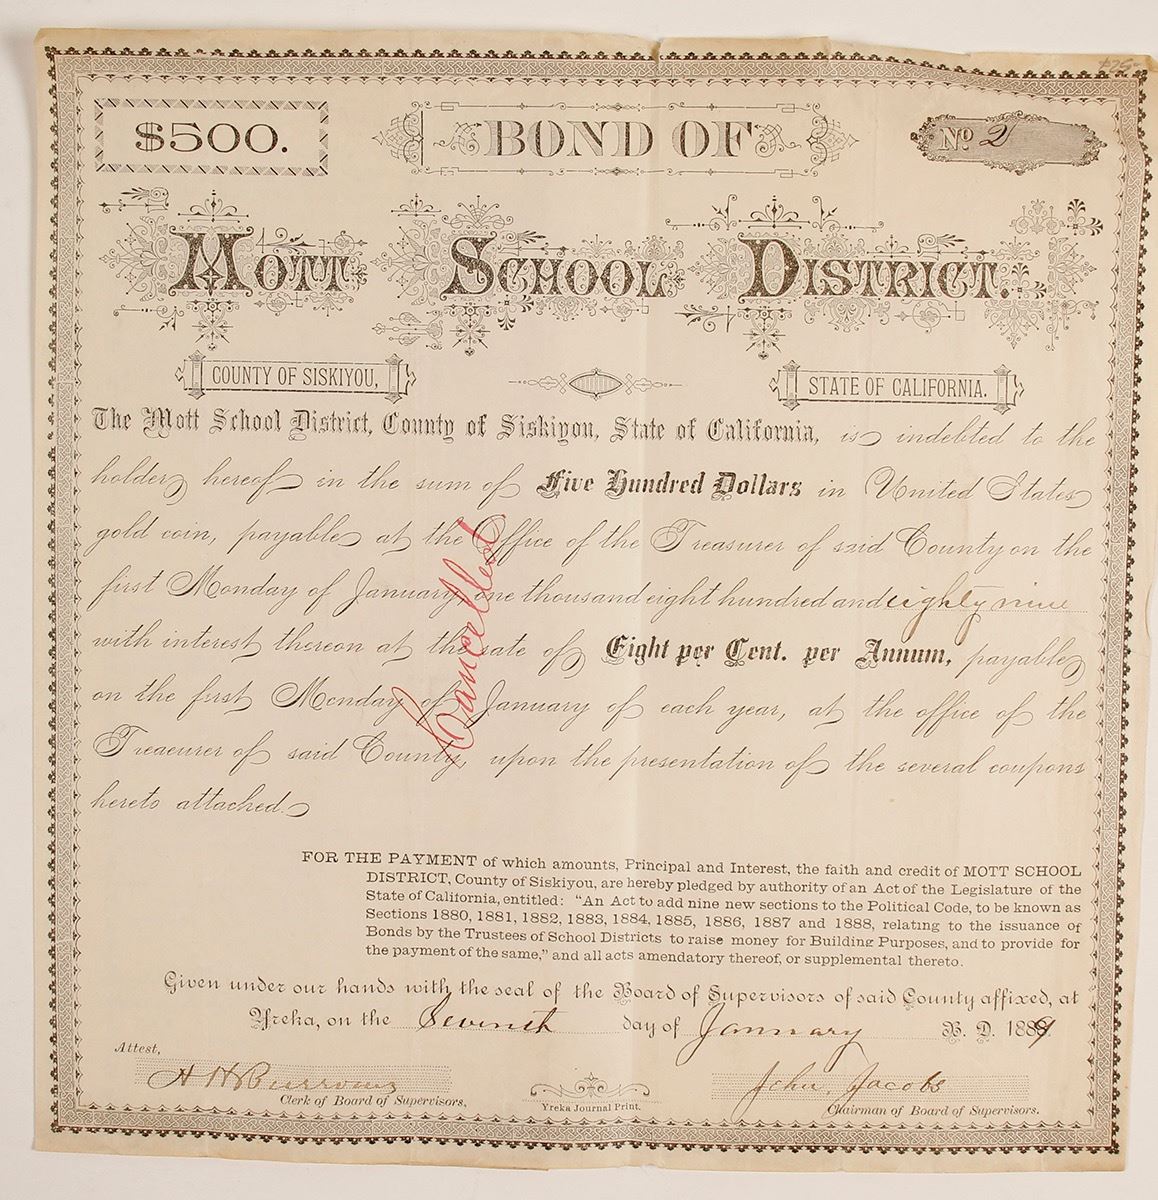 $500.
BOND OF
No. 2
MOTT SCHOOL DISTRICT.
COUNTY OF SISKIYOU,
STATE OF CALIFORNIA.
The Mott School District, County of Siskiyou, State of California, is indebted to the
holder hereof in the sum of Five Hundred Dollars in United States
gold coin, payable at the Office of the Treasurer of said County on the
first Monday of January, one thousand eight hundred and eighty nine
with interest thereon at the rate of Eight per Cent. per Annum, payable
on the first Monday of January of each year, at the office of the
Treasurer of said County, upon the presentation of the several coupons
hereto attached.
Cancelled
FOR THE PAYMENT of which amounts, Principal and Interest, the faith and credit of MOTT SCHOOL
DISTRICT, County of Siskiyou, are hereby pledged by authority of an Act of the Legislature of the
State of California, entitled: "An Act to add nine new sections to the Political Code, to be known as
Sections 1880, 1881, 1882, 1883, 1884, 1885, 1886, 1887 and 1888, relating to the issuance of
Bonds by the Trustees of School Districts to raise money for Building Purposes, and to provide for
the payment of the same," and all acts amendatory thereof, or supplemental thereto.
Given under our hands with the seal of the Board of Supervisors of said County affixed, at
Yreka, on the Seventh day of January A. D. 1889
Attest,
H H Burrows
Clerk of Board of Supervisors,
Yreka Journal Print.
John Jacobs
Chairman of Board of Supervisors.